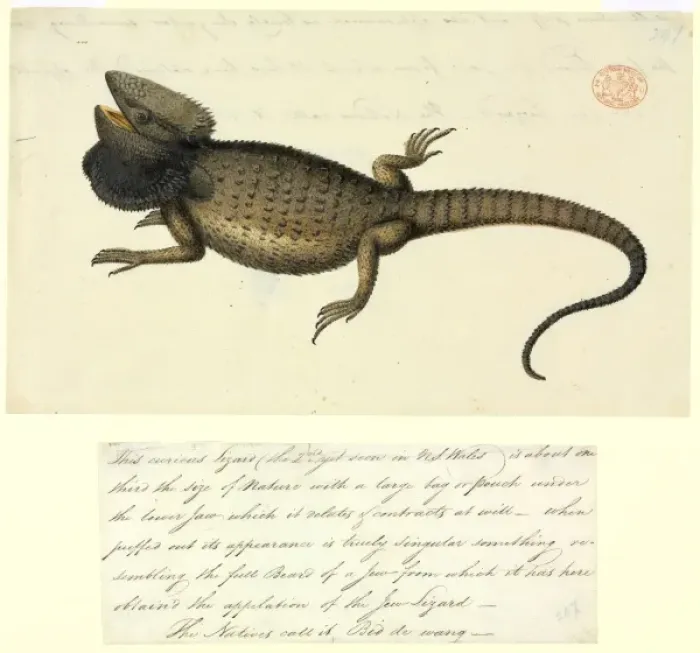 This curious Lizard (the yet seen in N.S.Wales) is about one
third the size of Nature with a large bag or pouch under
the lower Jaw which it delates & contracts at will — when
puffed out its appearance is truely singular something re-
sembling the full Beard of a Jew from which it has here
obtain'd the appelation of the Jew Lizard —
The Natives call it, Bid de wang —